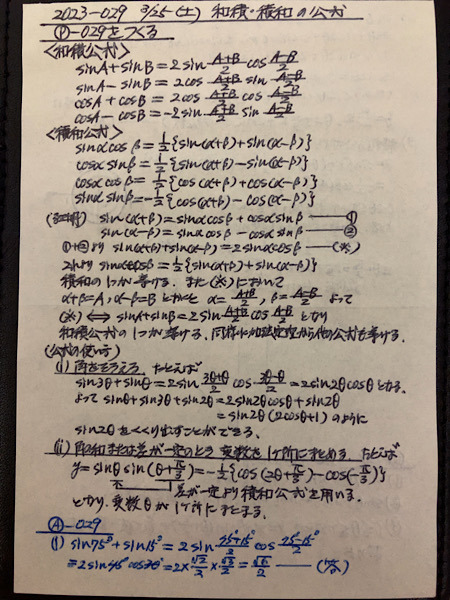 2023-029 3/25(土) 和積・積和の公式
Ⓟ-029をつくる
<和積公式>
sinA+sinB=2sin (A+B)/2 cos (A-B)/2
sinA-sinB=2cos (A+B)/2 sin (A-B)/2
cosA+cosB=2cos (A+B)/2 cos (A-B)/2
cosA-cosB=-2sin (A+B)/2 sin (A-B)/2
<積和公式>
sinαcosβ=1/2{sin(α+β)+sin(α-β)}
cosαsinβ=1/2{sin(α+β)-sin(α-β)}
cosαcosβ=1/2{cos(α+β)+cos(α-β)}
sinαsinβ=-1/2{cos(α+β)-cos(α-β)}
(証明) sin(α+β)=sinαcosβ+cosαsinβ ―①
sin(α-β)=sinαcosβ-cosαsinβ ―②
①+②より sin(α+β)+sin(α-β)=2sinαcosβ ―(※)
これより sinαcosβ=1/2{sin(α+β)+sin(α-β)}
積和の1つが導ける。また(※)において
α+β=A, α-β=Bとおくと α=(A+B)/2, β=(A-B)/2 よって
(※)⇔sinA+sinB=2sin (A+B)/2 cos (A-B)/2 となり
和積公式の1つが導ける。同様に加法定理から他の公式も導ける。
(公式の使い方)
(i) 角をそろえる たとえば
sin3θ+sinθ=2sin (3θ+θ)/2 cos (3θ-θ)/2=2sin2θcosθとなる。
よって sinθ+sin3θ+sin2θ=2sin2θcosθ+sin2θ
=sin2θ(2cosθ+1)のように
sin2θをくくり出すことができる。
(ii) 角の和または差が一定のとき変数を1ヶ所にまとめる たとえば
y=sinθsin(θ+π/3)=-1/2{cos(2θ+π/3)-cos(-π/3)}
差が一定より積和公式を用いる。
となり、変数θが1ヶ所にまとまる。
Ⓐ-029
(1) sin75°+sin15°=2sin (75°+15°)/2 cos (75°-15°)/2
=2sin45°cos30°=2×√2/2×√3/2=√6/2 ―(答)